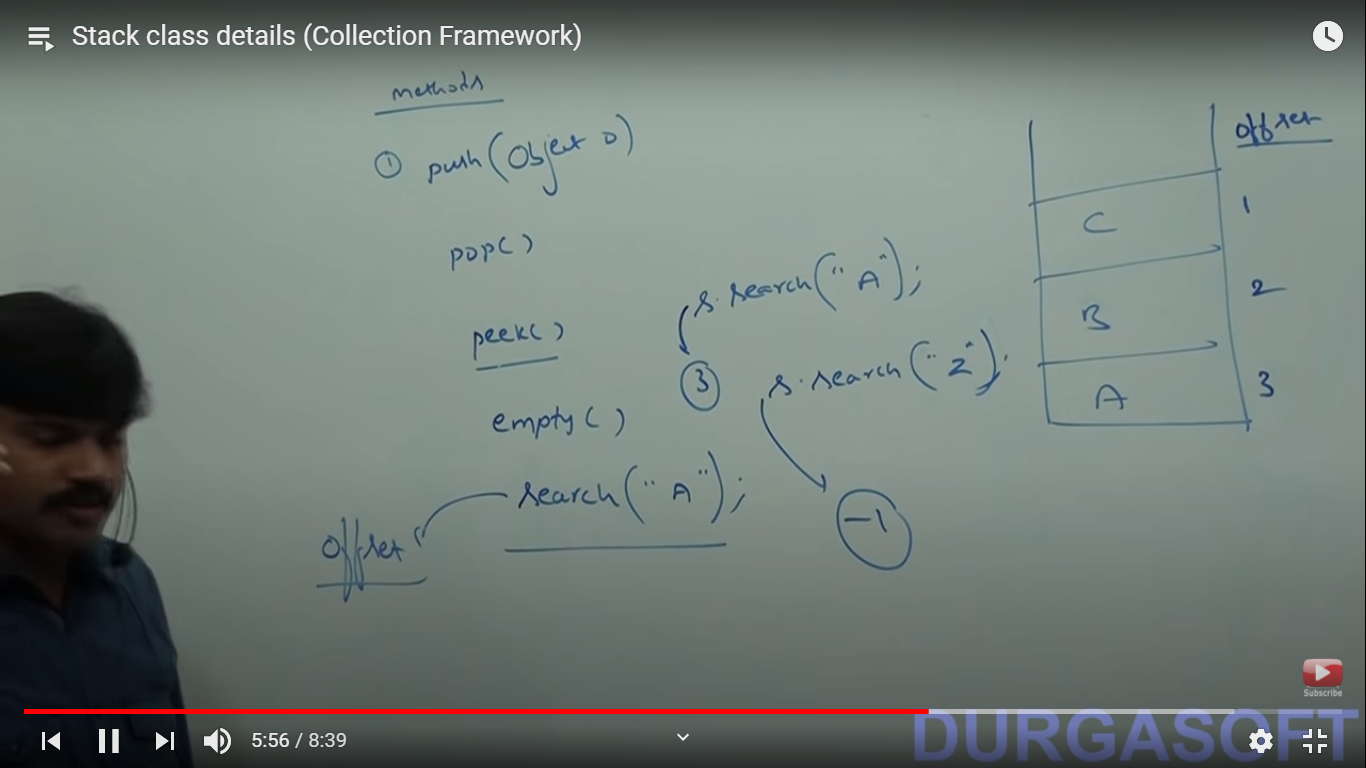 Stack class details (Collection Framework)
methods
① push(Object o)
pop( )
peek( )
empty( )
search("A");
offset
s.search("A");
3
s.search("Z");
-1
offset
C 1
B 2
A 3
Subscribe
DURGASOFT
5:56 / 8:39